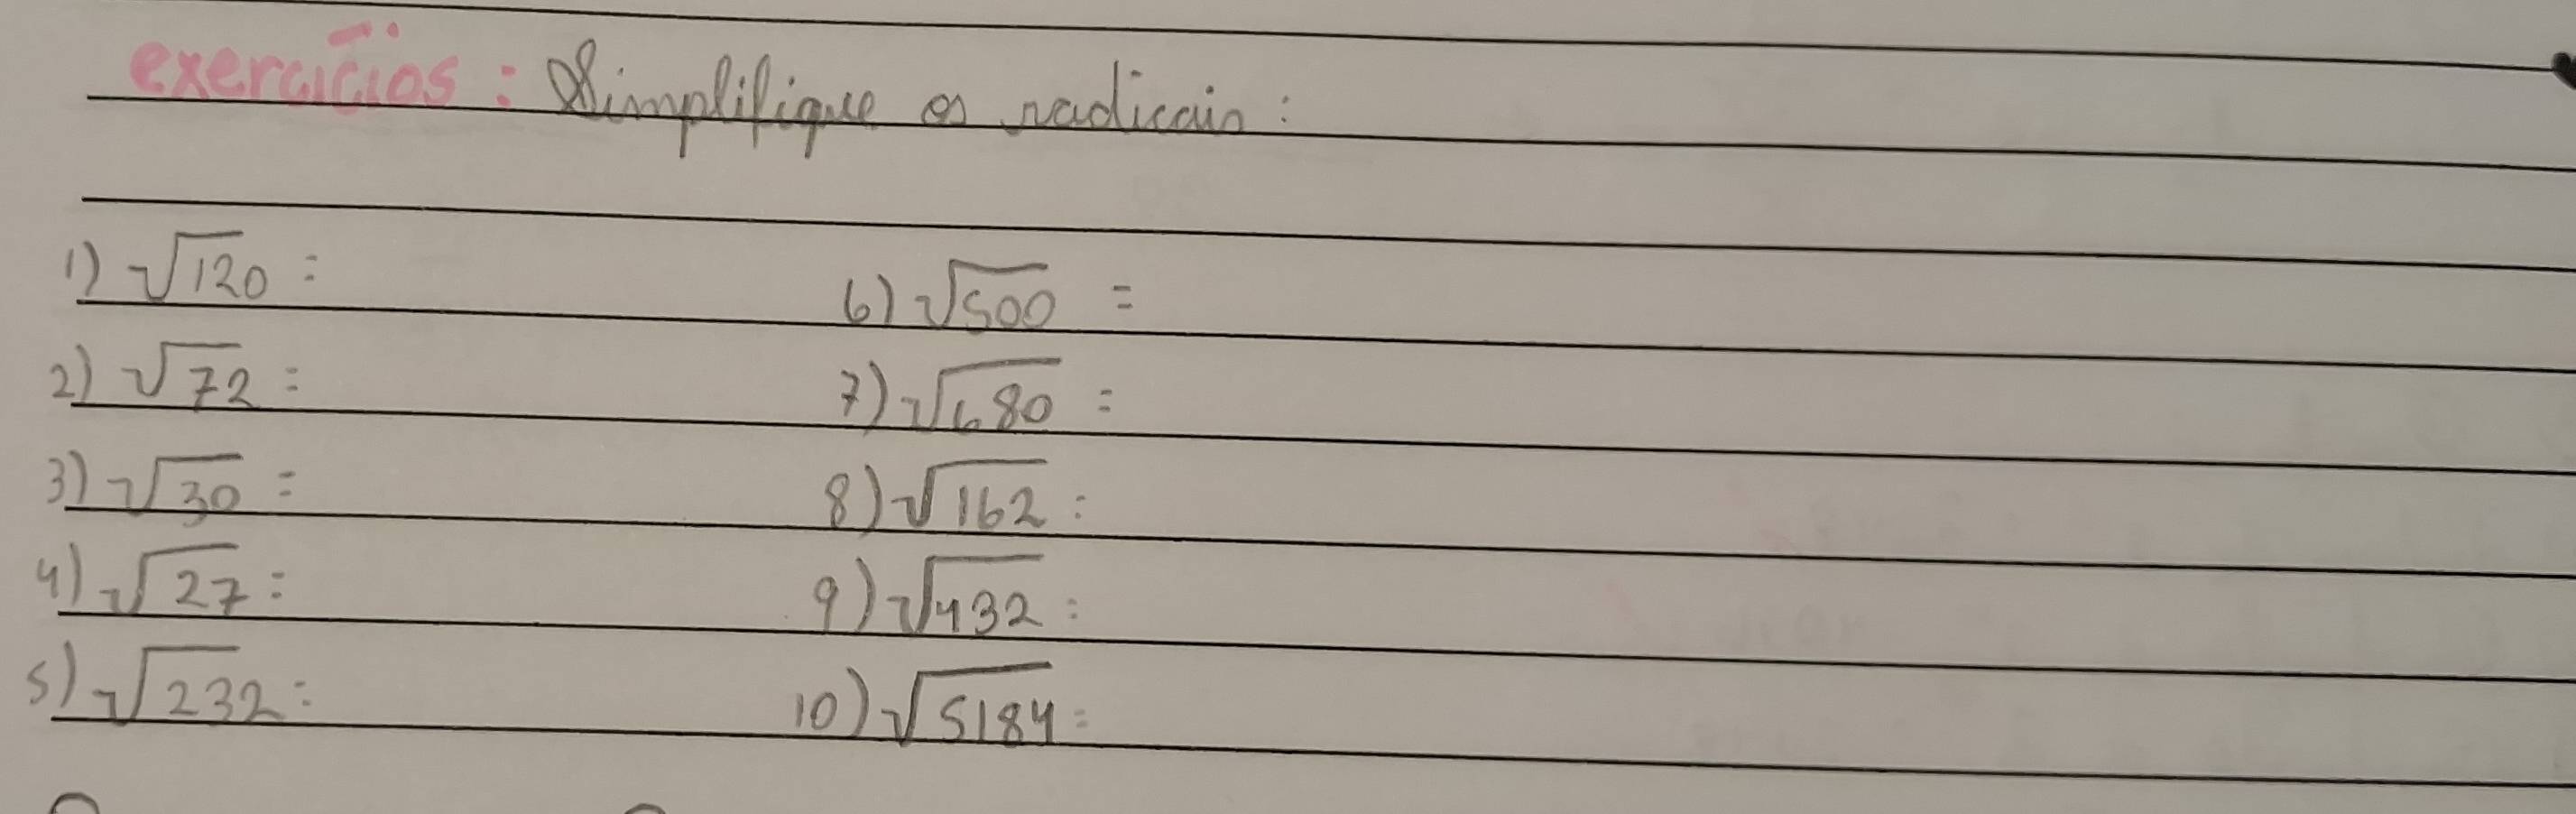 exercícios: Simplifique os radicais:
1) √120 =
2) √72 =
3) √30 =
4) √27 =
5) √232 =
6) √500 =
7) √680 =
8) √162 =
9) √432 =
10) √5184 =